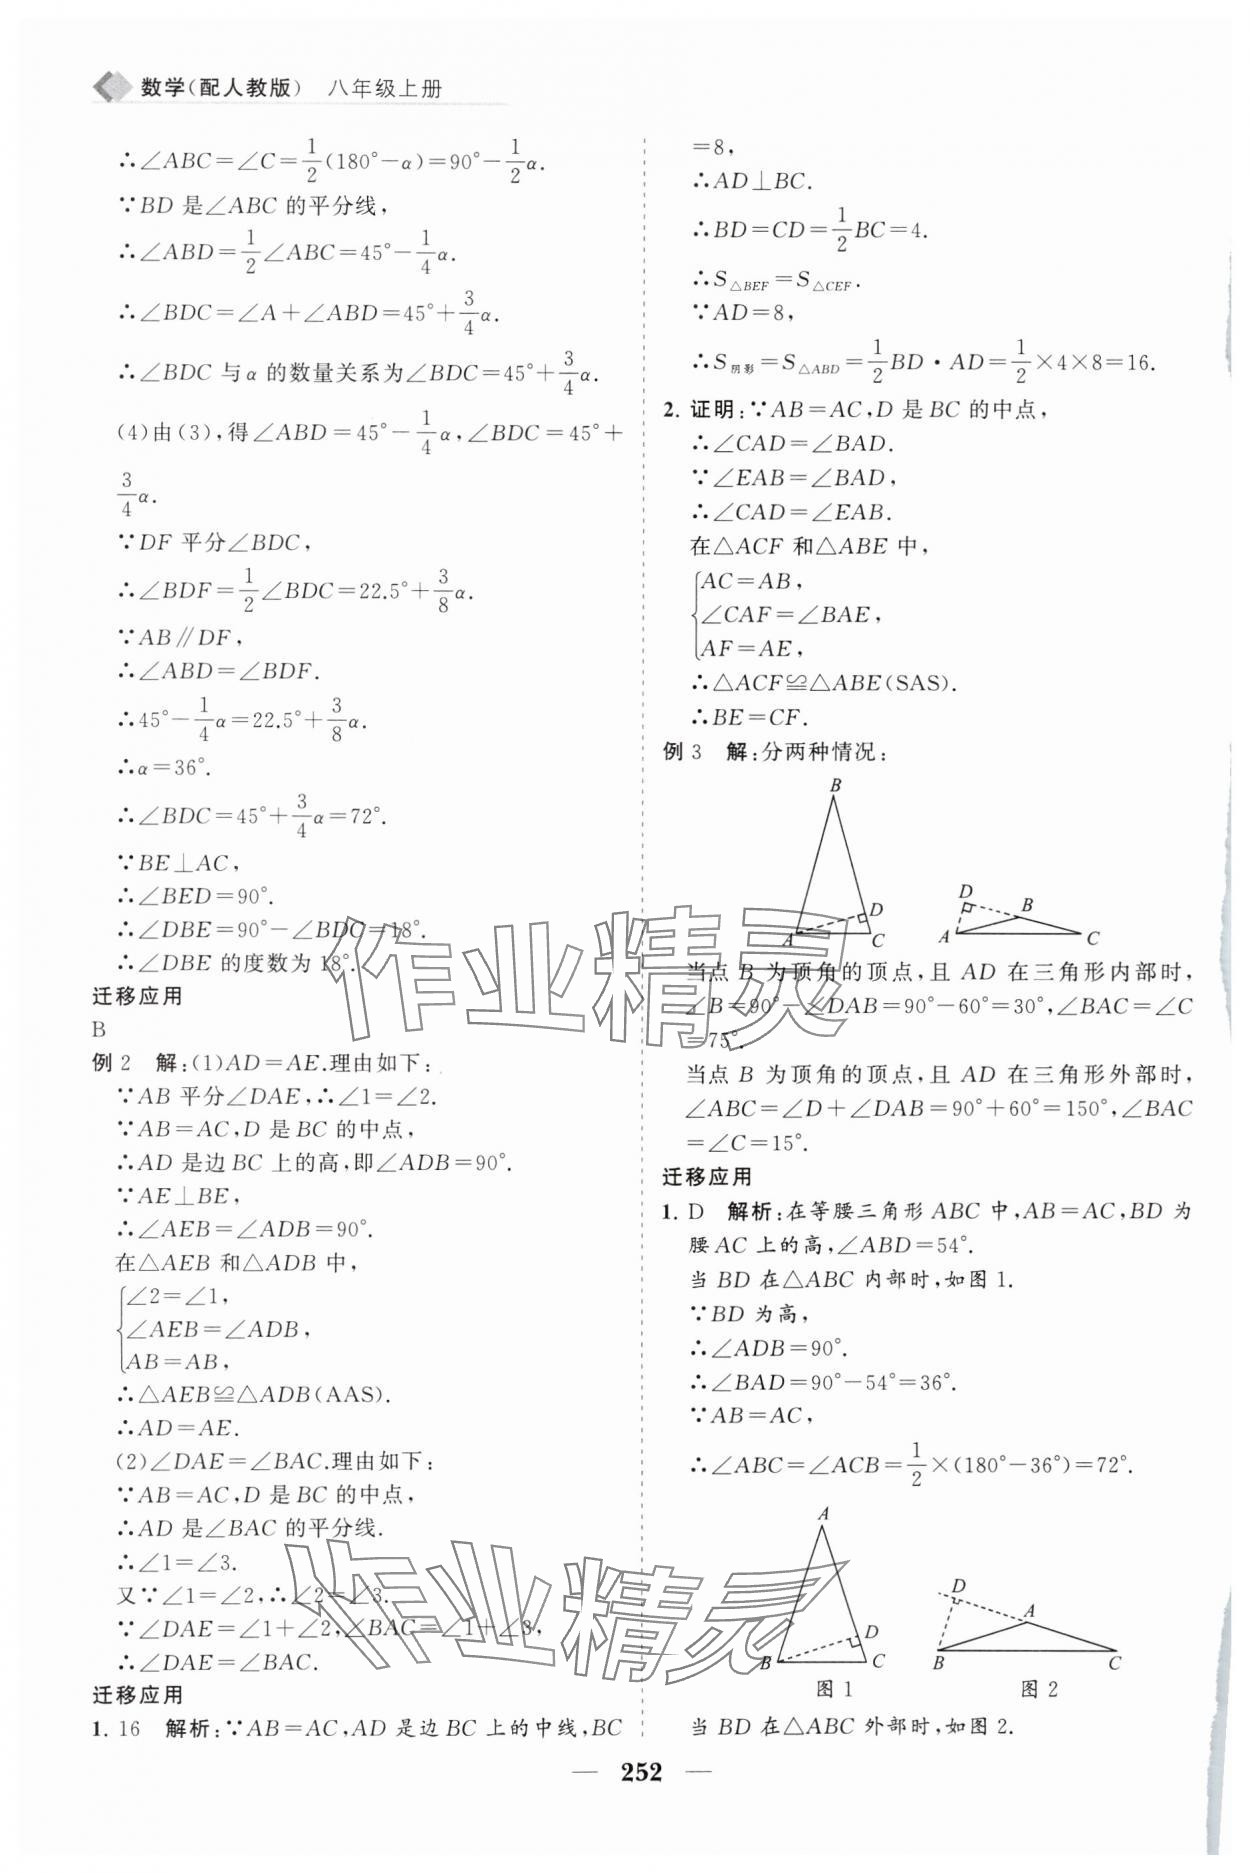 数学(配人教版) 八年级上册
∴∠ABC=∠C=1/2(180°-α)=90°-1/2α.
∵BD 是∠ABC 的平分线,
∴∠ABD=1/2∠ABC=45°-1/4α.
∴∠BDC=∠A+∠ABD=45°+3/4α.
∴∠BDC 与α 的数量关系为∠BDC=45°+3/4α.
(4)由(3),得∠ABD=45°-1/4α,∠BDC=45°+
3/4α.
∵DF 平分∠BDC,
∴∠BDF=1/2∠BDC=22.5°+3/8α.
∵AB∥DF,
∴∠ABD=∠BDF.
∴45°-1/4α=22.5°+3/8α.
∴α=36°.
∴∠BDC=45°+3/4α=72°.
∵BE⊥AC,
∴∠BED=90°.
∴∠DBE=90°-∠BDC=18°.
∴∠DBE 的度数为 18°.
迁移应用
B
例 2 解:(1)AD=AE.理由如下:
∵AB 平分∠DAE,∴∠1=∠2.
∵AB=AC,D 是 BC 的中点,
∴AD 是边 BC 上的高,即∠ADB=90°.
∵AE⊥BE,
∴∠AEB=∠ADB=90°.
在△AEB 和△ADB 中,
∠2=∠1,
∠AEB=∠ADB,
AB=AB,
∴△AEB≌△ADB(AAS).
∴AD=AE.
(2)∠DAE=∠BAC.理由如下:
∵AB=AC,D 是 BC 的中点,
∴AD 是∠BAC 的平分线.
∴∠1=∠3.
又∵∠1=∠2,∴∠2=∠3.
∵∠DAE=∠1+∠2,∠BAC=∠1+∠3,
∴∠DAE=∠BAC.
迁移应用
1. 16 解析:∵AB=AC,AD 是边 BC 上的中线,BC
=8,
∴AD⊥BC.
∴BD=CD=1/2BC=4.
∴S△BEF=S△CEF.
∵AD=8,
∴S阴影=S△ABD=1/2BD·AD=1/2×4×8=16.
2. 证明:∵AB=AC,D 是 BC 的中点,
∴∠CAD=∠BAD.
∵∠EAB=∠BAD,
∴∠CAD=∠EAB.
在△ACF 和△ABE 中,
AC=AB,
∠CAF=∠BAE,
AF=AE,
∴△ACF≌△ABE(SAS).
∴BE=CF.
例 3 解:分两种情况:
B
D
A
C
D
B
A
C
当点 B 为顶角的顶点,且 AD 在三角形内部时,
∠B=90°-∠DAB=90°-60°=30°,∠BAC=∠C
=75°.
当点 B 为顶角的顶点,且 AD 在三角形外部时,
∠ABC=∠D+∠DAB=90°+60°=150°,∠BAC
=∠C=15°.
迁移应用
1. D 解析:在等腰三角形 ABC 中,AB=AC,BD 为
腰 AC 上的高,∠ABD=54°.
当 BD 在△ABC 内部时,如图 1.
∵BD 为高,
∴∠ADB=90°.
∴∠BAD=90°-54°=36°.
∵AB=AC,
∴∠ABC=∠ACB=1/2×(180°-36°)=72°.
A
D
B
C
图 1
D
A
B
C
图 2
当 BD 在△ABC 外部时,如图 2.
252
作业精灵
作业精灵